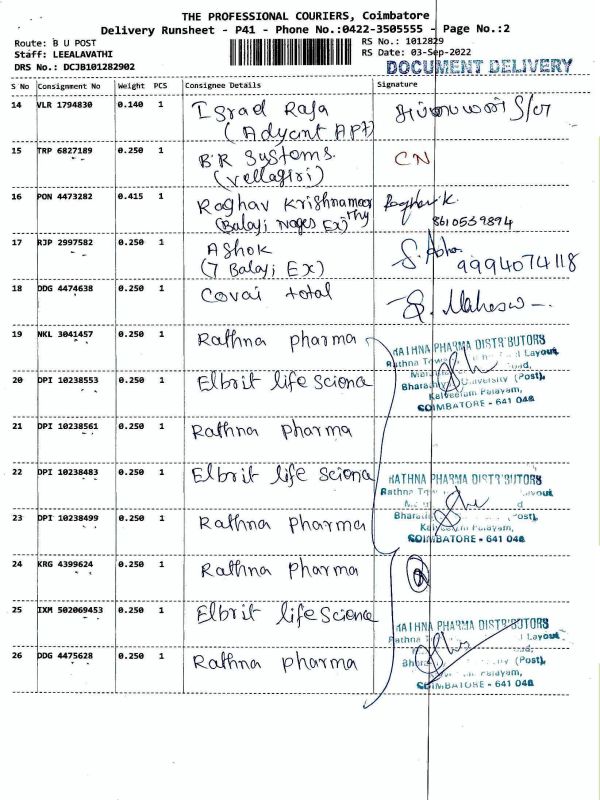 THE PROFESSIONAL COURIERS, Coimbatore
Delivery Runsheet - P41 - Phone No.:0422-3505555 - Page No.:2
Route: B U POST
RS No.: 1012829
Staff: LEEALAVATHI
RS Date: 03-Sep-2022
DRS No.: DCJB101282902
DOCUMENT DELIVERY
S No Consignment No Weight PCS Consignee Details Signature
14 VLR 1794830 0.140 1 Israel Raja
(Adyant APT)
15 TRP 6827189 0.250 1 BR Systems. CN
(vellagiri)
16 PON 4473282 0.415 1 Raghav Krishnamoor Raghav K.
thy
(Balaji Nages Ex) 8610539894
17 RJP 2997582 0.250 1 Ashok S. Asho
(7 Balaji Ex) 9994074118
18 DDG 4474638 0.250 1 Covai total S. Mahesw
19 NKL 3041457 0.250 1 Rathna pharma
RATHNA PHARMA DISTRIBUTORS
Rathna Layout
20 DPI 10238553 0.250 1 Elbrit life Sciona
Bharathiyar University (Post),
Kalveeram Palayam,
COIMBATORE - 641 046
21 DPI 10238561 0.250 1 Rathna pharma
22 DPI 10238483 0.250 1 Elbrit life Sciona
RATHNA PHARMA DISTRIBUTORS
Rathna Layout
23 DPI 10238499 0.250 1 Rathna pharma
Palayam,
COIMBATORE - 641 046
24 KRG 4399624 0.250 1 Rathna pharma
25 IXM 502069453 0.250 1 Elbrit life Sciona
RATHNA PHARMA DISTRIBUTORS
Rathna Layout
26 DDG 4475628 0.250 1 Rathna pharma
(Post),
Palayam,
COIMBATORE - 641 046